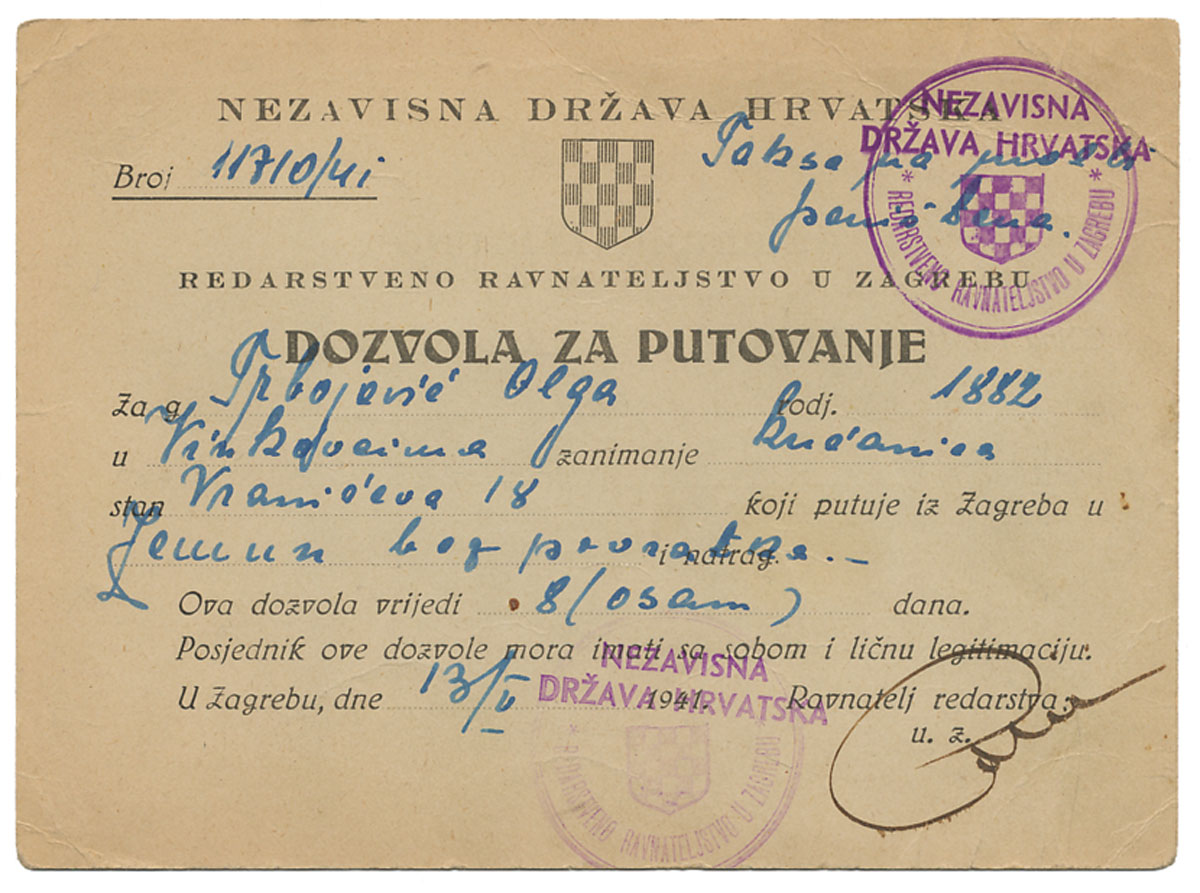 NEZAVISNA DRŽAVA HRVATSKA
Broj 11710/41
Taksa na
REDARSTVENO RAVNATELJSTVO U ZAGREBU
NEZAVISNA
DRŽAVA HRVATSKA
* REDARSTVENO RAVNATELJSTVO U ZAGREBU *
DOZVOLA ZA PUTOVANJE
Za g. Trbojević Olga rodj. 1882
u Vinkovcima zanimanje kućanica
stan Vranićeva 18 koji putuje iz Zagreba u
Zemun bez povratka.— i natrag.
Ova dozvola vrijedi 8 (osam) dana.
Posjednik ove dozvole mora imati sa sobom i ličnu legitimaciju.
U Zagrebu, dne 13/V 1941. Ravnatelj redarstva:
u. z.
NEZAVISNA
DRŽAVA HRVATSKA
* REDARSTVENO RAVNATELJSTVO U ZAGREBU *